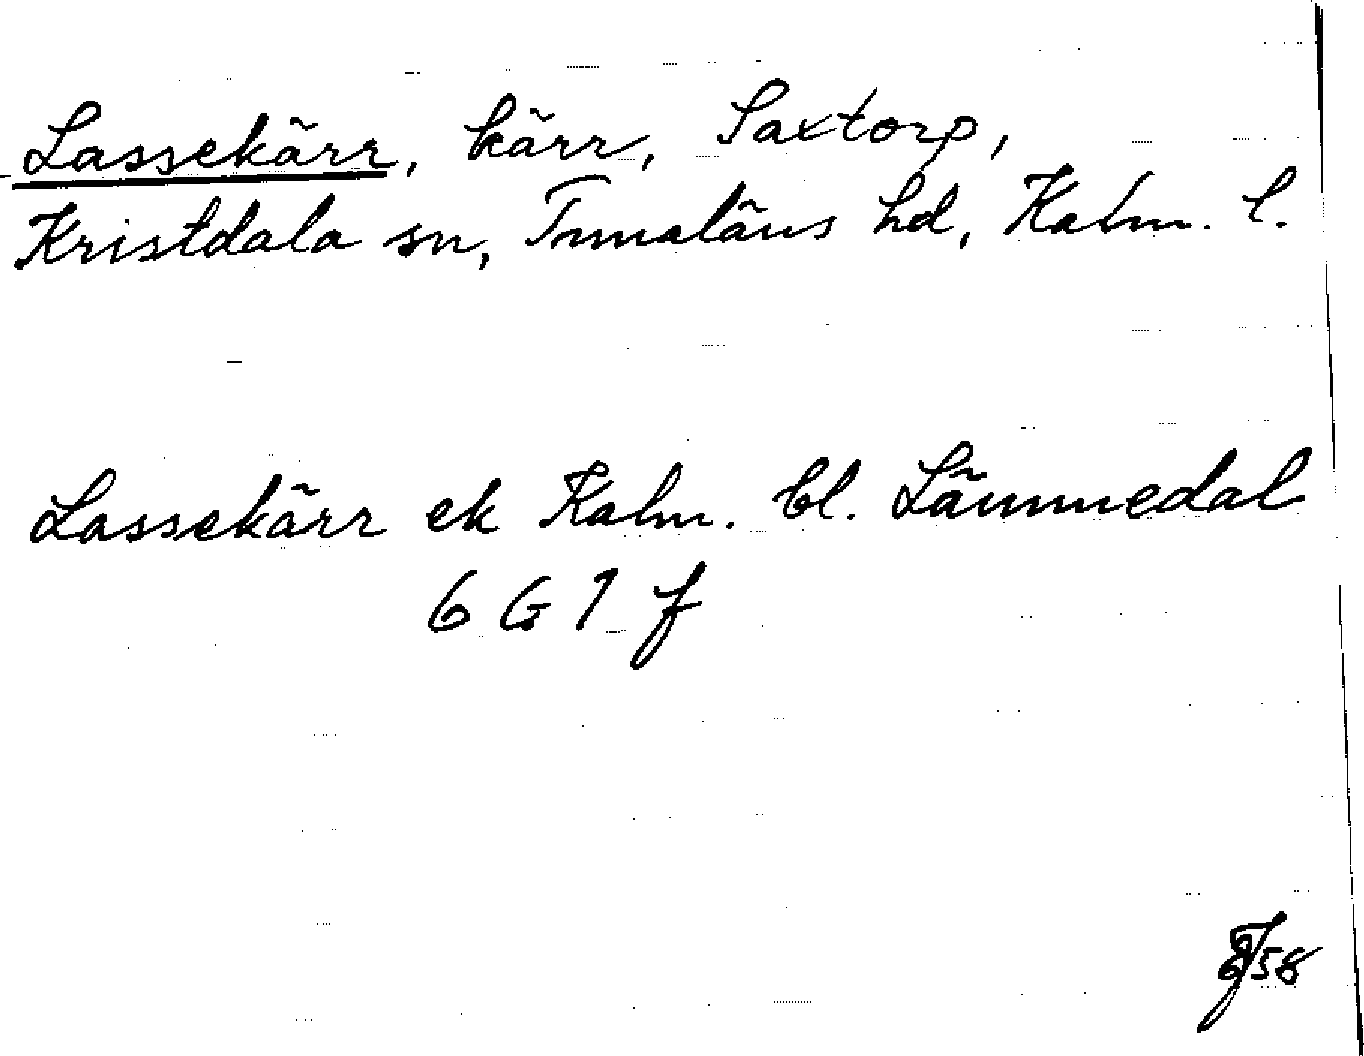 Lassekärr, kärr, Saxtorp,
Kristdala sn, Tunaläns hd, Kalm. l.
Lassekärr ek Kalm. bl. Lämmedal
6 G 7 f
58